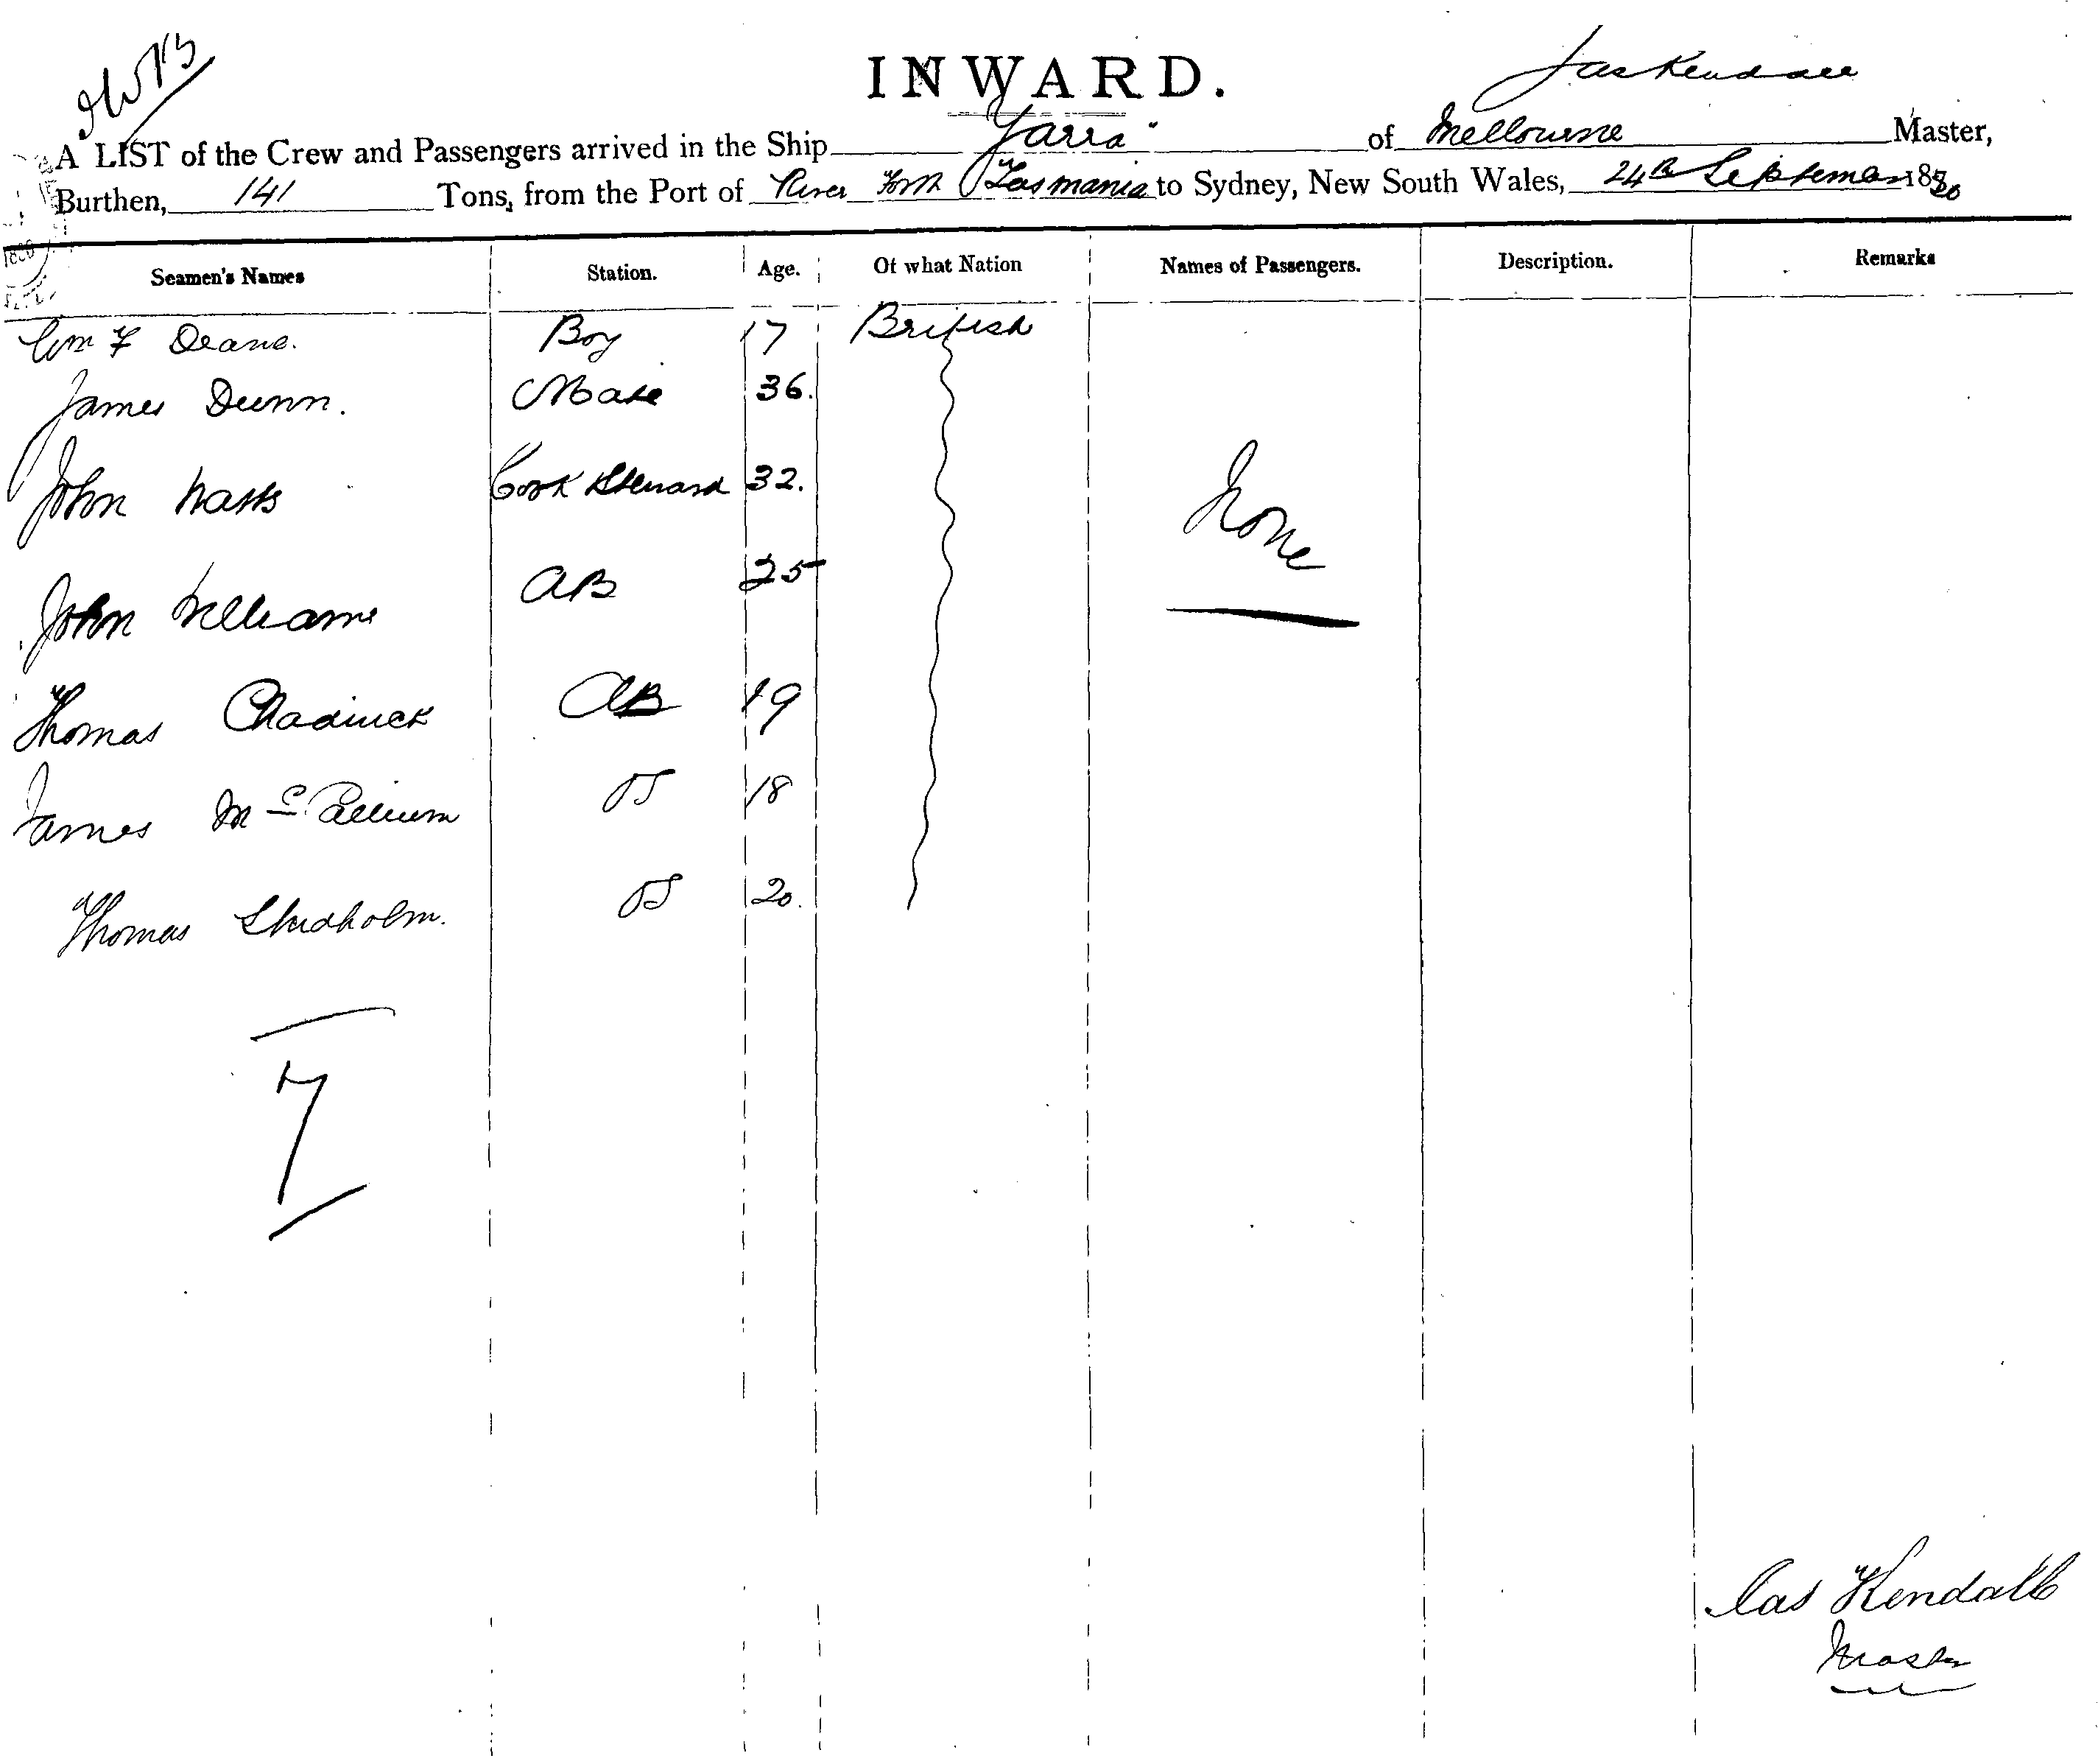 INWARD.
Jas Kendall
A LIST of the Crew and Passengers arrived in the Ship Yarra of Melbourne Master,
Burthen, 141 Tons, from the Port of River Forth Tasmania to Sydney, New South Wales, 24th September 1880
Seamen's Names Station. Age. Of what Nation Names of Passengers. Description. Remarks
Wm F Deane. Boy 17 British
James Dunn. Mate 36.
John Watts Cook Steward 32.
None
John Williams AB 25
Thomas Chadwick AB 19
James McCallum OS 18
Thomas Studholm. OS 20.
7
Jas Kendall
Master